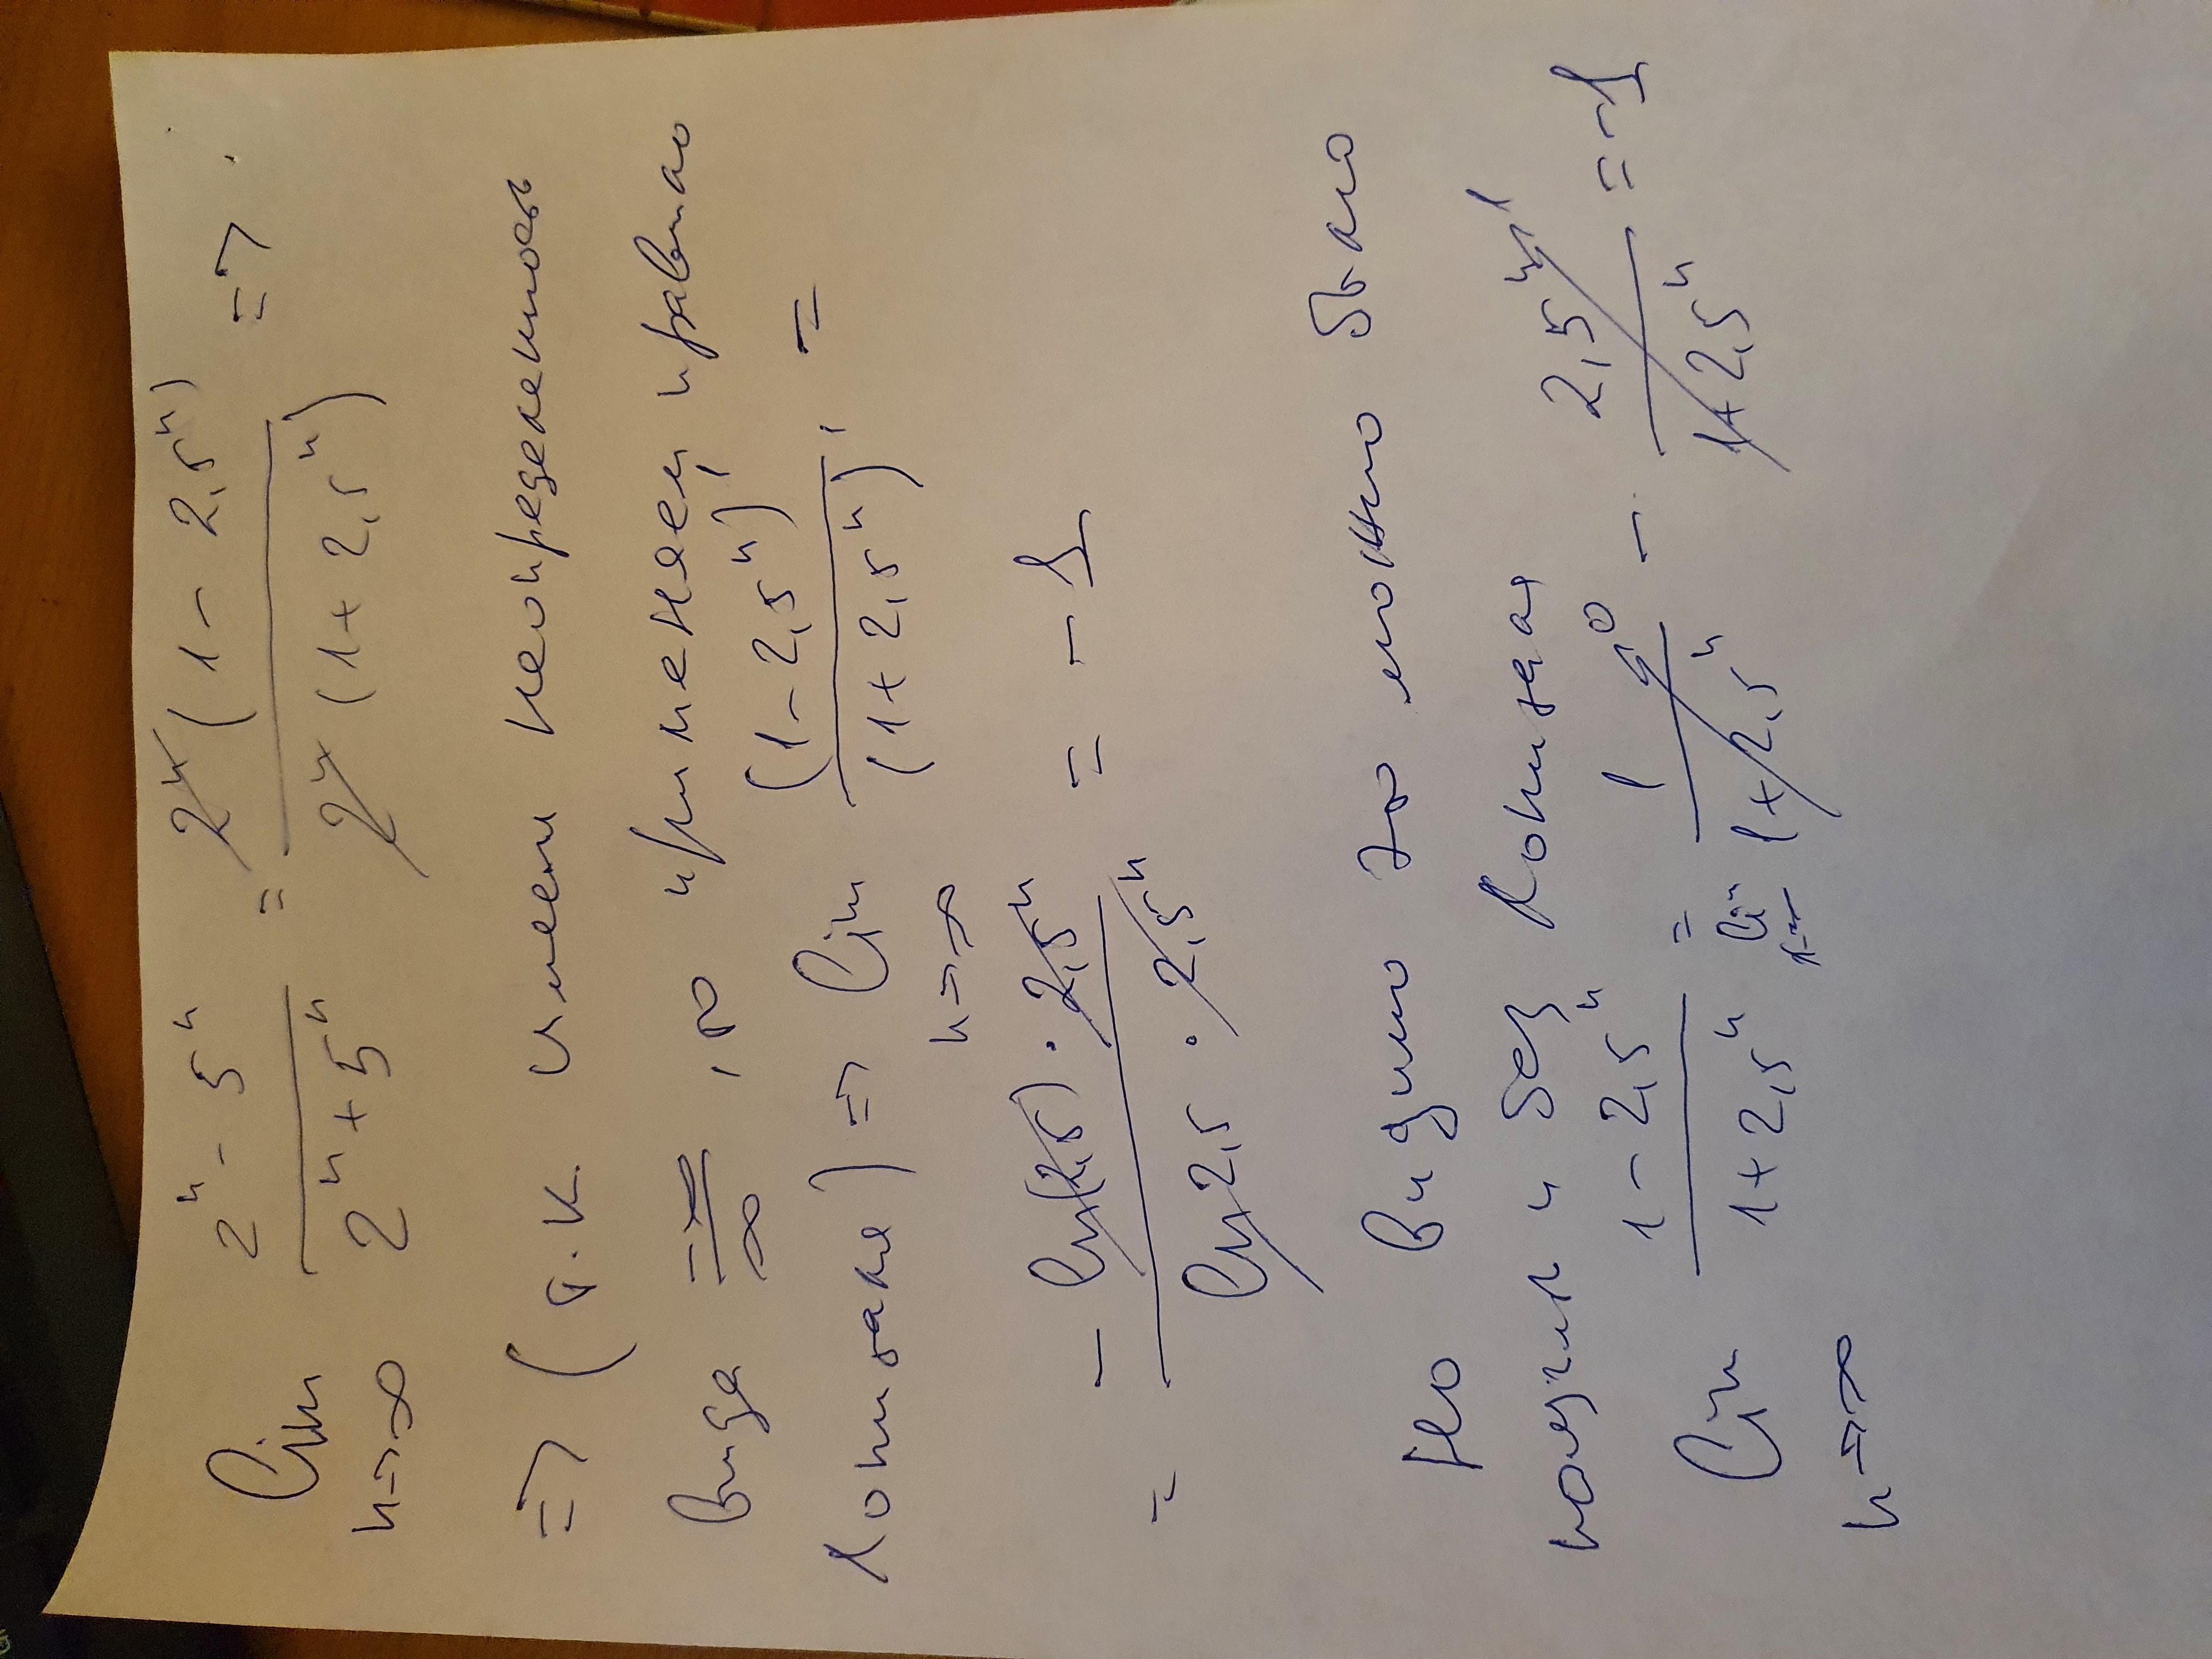 lim 2ⁿ - 5ⁿ / 2ⁿ + 5ⁿ = 2ⁿ(1 - 2,5ⁿ) / 2ⁿ(1 + 2,5ⁿ) =>
n→∞
=> (т.к имеем неопределенность
вида -∞/∞, то применяем правило
Лопиталя) => lim (1 - 2,5ⁿ)' / (1 + 2,5ⁿ)' =
n→∞
= - ln(2,5) · 2,5ⁿ / ln 2,5 · 2,5ⁿ = - 1
Но видимо это можно было
и без Лопиталя
lim 1 - 2,5ⁿ / 1 + 2,5ⁿ = lim 1 / 1 + 2,5ⁿ - 2,5ⁿ / 1 + 2,5ⁿ = - 1
n→∞